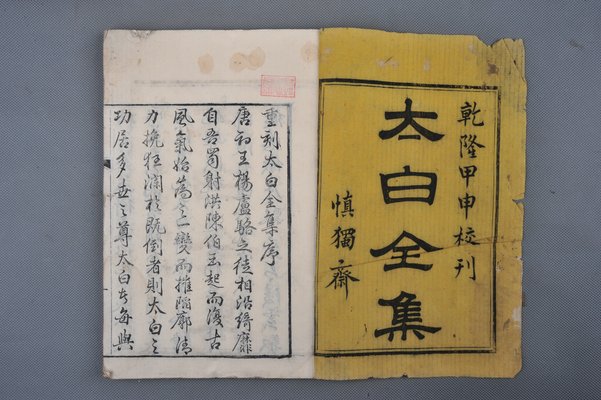 乾隆甲申校刊
太白全集
慎獨齋
重刻太白全集序
唐初王楊盧駱之徒相沿綺靡
自吾蜀射洪陳伯玉起而復古
風氣始蕩之一變而摧陷廓清
力挽狂瀾於既倒者則太白之
功居多世之尊太白者每與